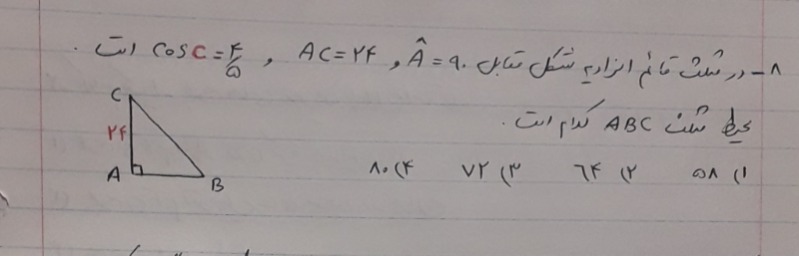 ۸- در مثلث قائم الزاویه شکل مقابل Â = ۹۰ , AC = ۲۴ , cos C = ۴/۵ است .
محیط مثلث ABC کدام است.
۱) ۵۸ ۲) ۶۴ ۳) ۷۲ ۴) ۸۰
C
۲۴
A
B